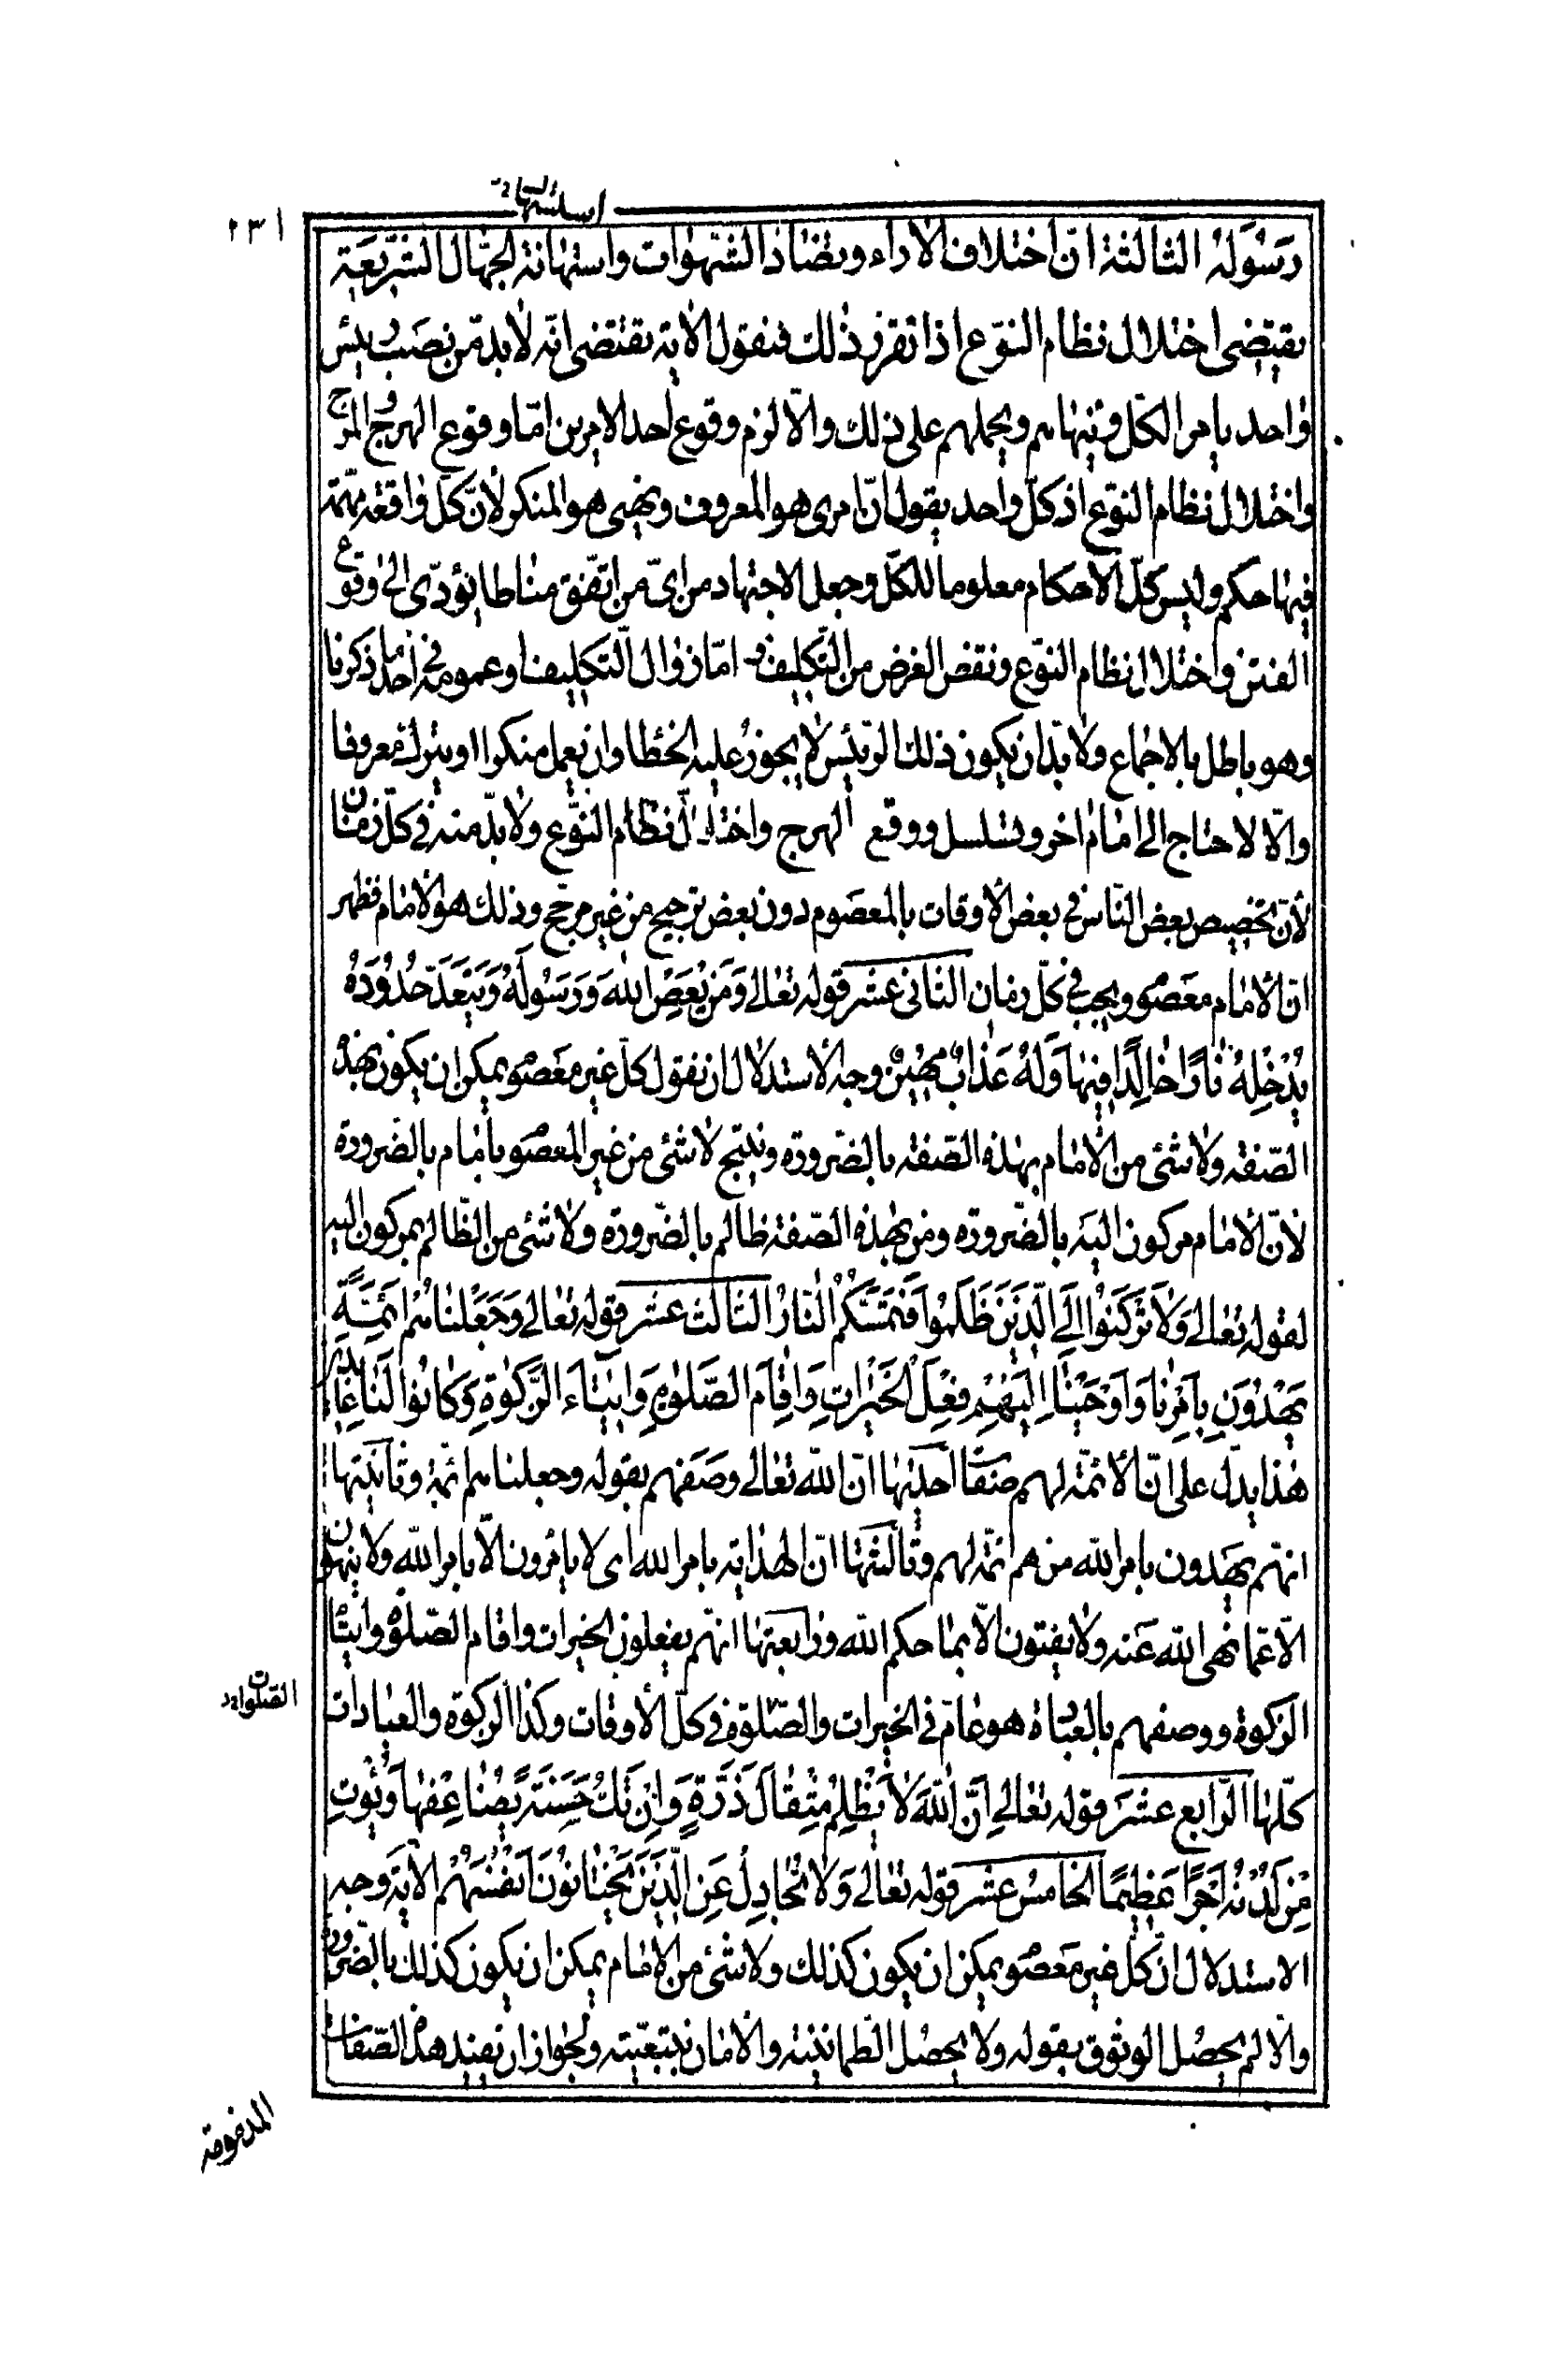 ٢٣١
رَسُوله الثالثة انّ اختلاف الأراء وتضادّ الشهوات واستهانة الجهّال الشريعة
يقتضى اختلال نظام النّوع اذا تقرّر ذلك فنقول الأية تقتضى انّه لا بدّ من نصب رئيس
واحد يامر الكلّ وينهاهم ويحملهم على ذلك والّا لزم وقوع احد الامرين امّا وقوع الهرج والمرج
واختلال نظام النّوع اذ كلّ واحد يقول انّ امرى هو المعروف ونهيى هو المنكر لأنّ كلّ واقعة مهمّة
فيها حكم وليس كلّ الأحكام معلوما للكلّ وجعل الاجتهاد من اىّ من اتّفق مناطا يؤدّى الى وقوع
الفتن واختلال نظام النّوع ونقض الغرض من التّكليف امّا زوال التّكليف او عمومه فى احد ما ذكرنا
وهو باطل بالاجماع ولا بدّ ان يكون ذلك الرّئيس لا يجوز عليه الخطا وان يعمل منكرا او يترك معروفا
والّا لاحتاج الى امام اخر وتسلسل ووقع الهرج واختلال نظام النّوع ولا بدّ منه فى كلّ زمان
لأنّ تخصيص بعض النّاس فى بعض الأوقات بالمعصوم دون بعض ترجيح من غير مرجّح وذلك هو الامام فظهر
انّ الأمام معصوم ويجب فى كلّ زمان الثانى عشر قوله تعالى وَمَنْ يَعْصِ اللهَ وَرَسُولَهُ وَيَتَعَدَّ حُدُودَهُ
يُدْخِلْهُ نَارًا خَالِدًا فِيهَا وَلَهُ عَذَابٌ مُهِينٌ وجه الأستدلال ان نقول كلّ غير معصوم يمكن ان يكون بهذه
الصّفة ولا شئ من الامام بهذه الصّفة بالضّرورة وينتج لا شئ من غير المعصوم بامام بالضّرورة
لأنّ الامام مركون اليه بالضّرورة ومن بهذه الصّفة ظالم بالضّرورة ولا شئ من الظّالم بمركون اليه
لقوله تعالى وَلَا تَرْكَنُوا اِلَى الَّذِينَ ظَلَمُوا فَتَمَسَّكُمُ النَّارُ الثالث عشر قوله تعالى وَجَعَلْنَاهُمْ اَئِمَّةً
يَهْدُونَ بِاَمْرِنَا وَاَوْحَيْنَا اِلَيْهِمْ فِعْلَ الْخَيْرَاتِ وَاِقَامَ الصَّلٰوةِ وَاِيتَاءَ الزَّكٰوةِ وَكَانُوا لَنَا عَابِدِينَ
هذا يدلّ على انّ الأئمّة لهم صفات احديها انّ الله تعالى وصفهم بقوله وجعلناهم ائمة وثانيتها
انهم يهدون بامر الله من هم ائمّة لهم وثالثتها انّ الهداية بامر الله اى لا يامرون الّا بامر الله ولا ينهون
الّا عمّا نهى الله عنه ولا يفتون الّا بما حكم الله ورابعتها انهم يفعلون الخيرات واقام الصّلوة وايتاء
الزكوة ووصفهم بالعبادة هو عامّ فى الخيرات والصّلوة فى كلّ الأوقات وكذا الزكوة والعبادات
كلّها الرّابع عشر قوله تعالى اِنَّ اللهَ لَا يَظْلِمُ مِثْقَالَ ذَرَّةٍ وَاِنْ تَكُ حَسَنَةً يُضَاعِفْهَا وَيُؤْتِ
مِنْ لَدُنْهُ اَجْرًا عَظِيمًا الخامس عشر قوله تعالى وَلَا تُجَادِلْ عَنِ الَّذِينَ يَخْتَانُونَ اَنْفُسَهُمْ الأية وجه
الاستدلال انّ كلّ غير معصوم يمكن ان يكون كذلك ولا شئ من الامام يمكن ان يكون كذلك بالضّرورة
والّا لم يحصل الوثوق بقوله ولا يحصل الطّمانينة والأمان بتبعيّته ولجواز ان تفيد هذه الصّفات
المذمومة